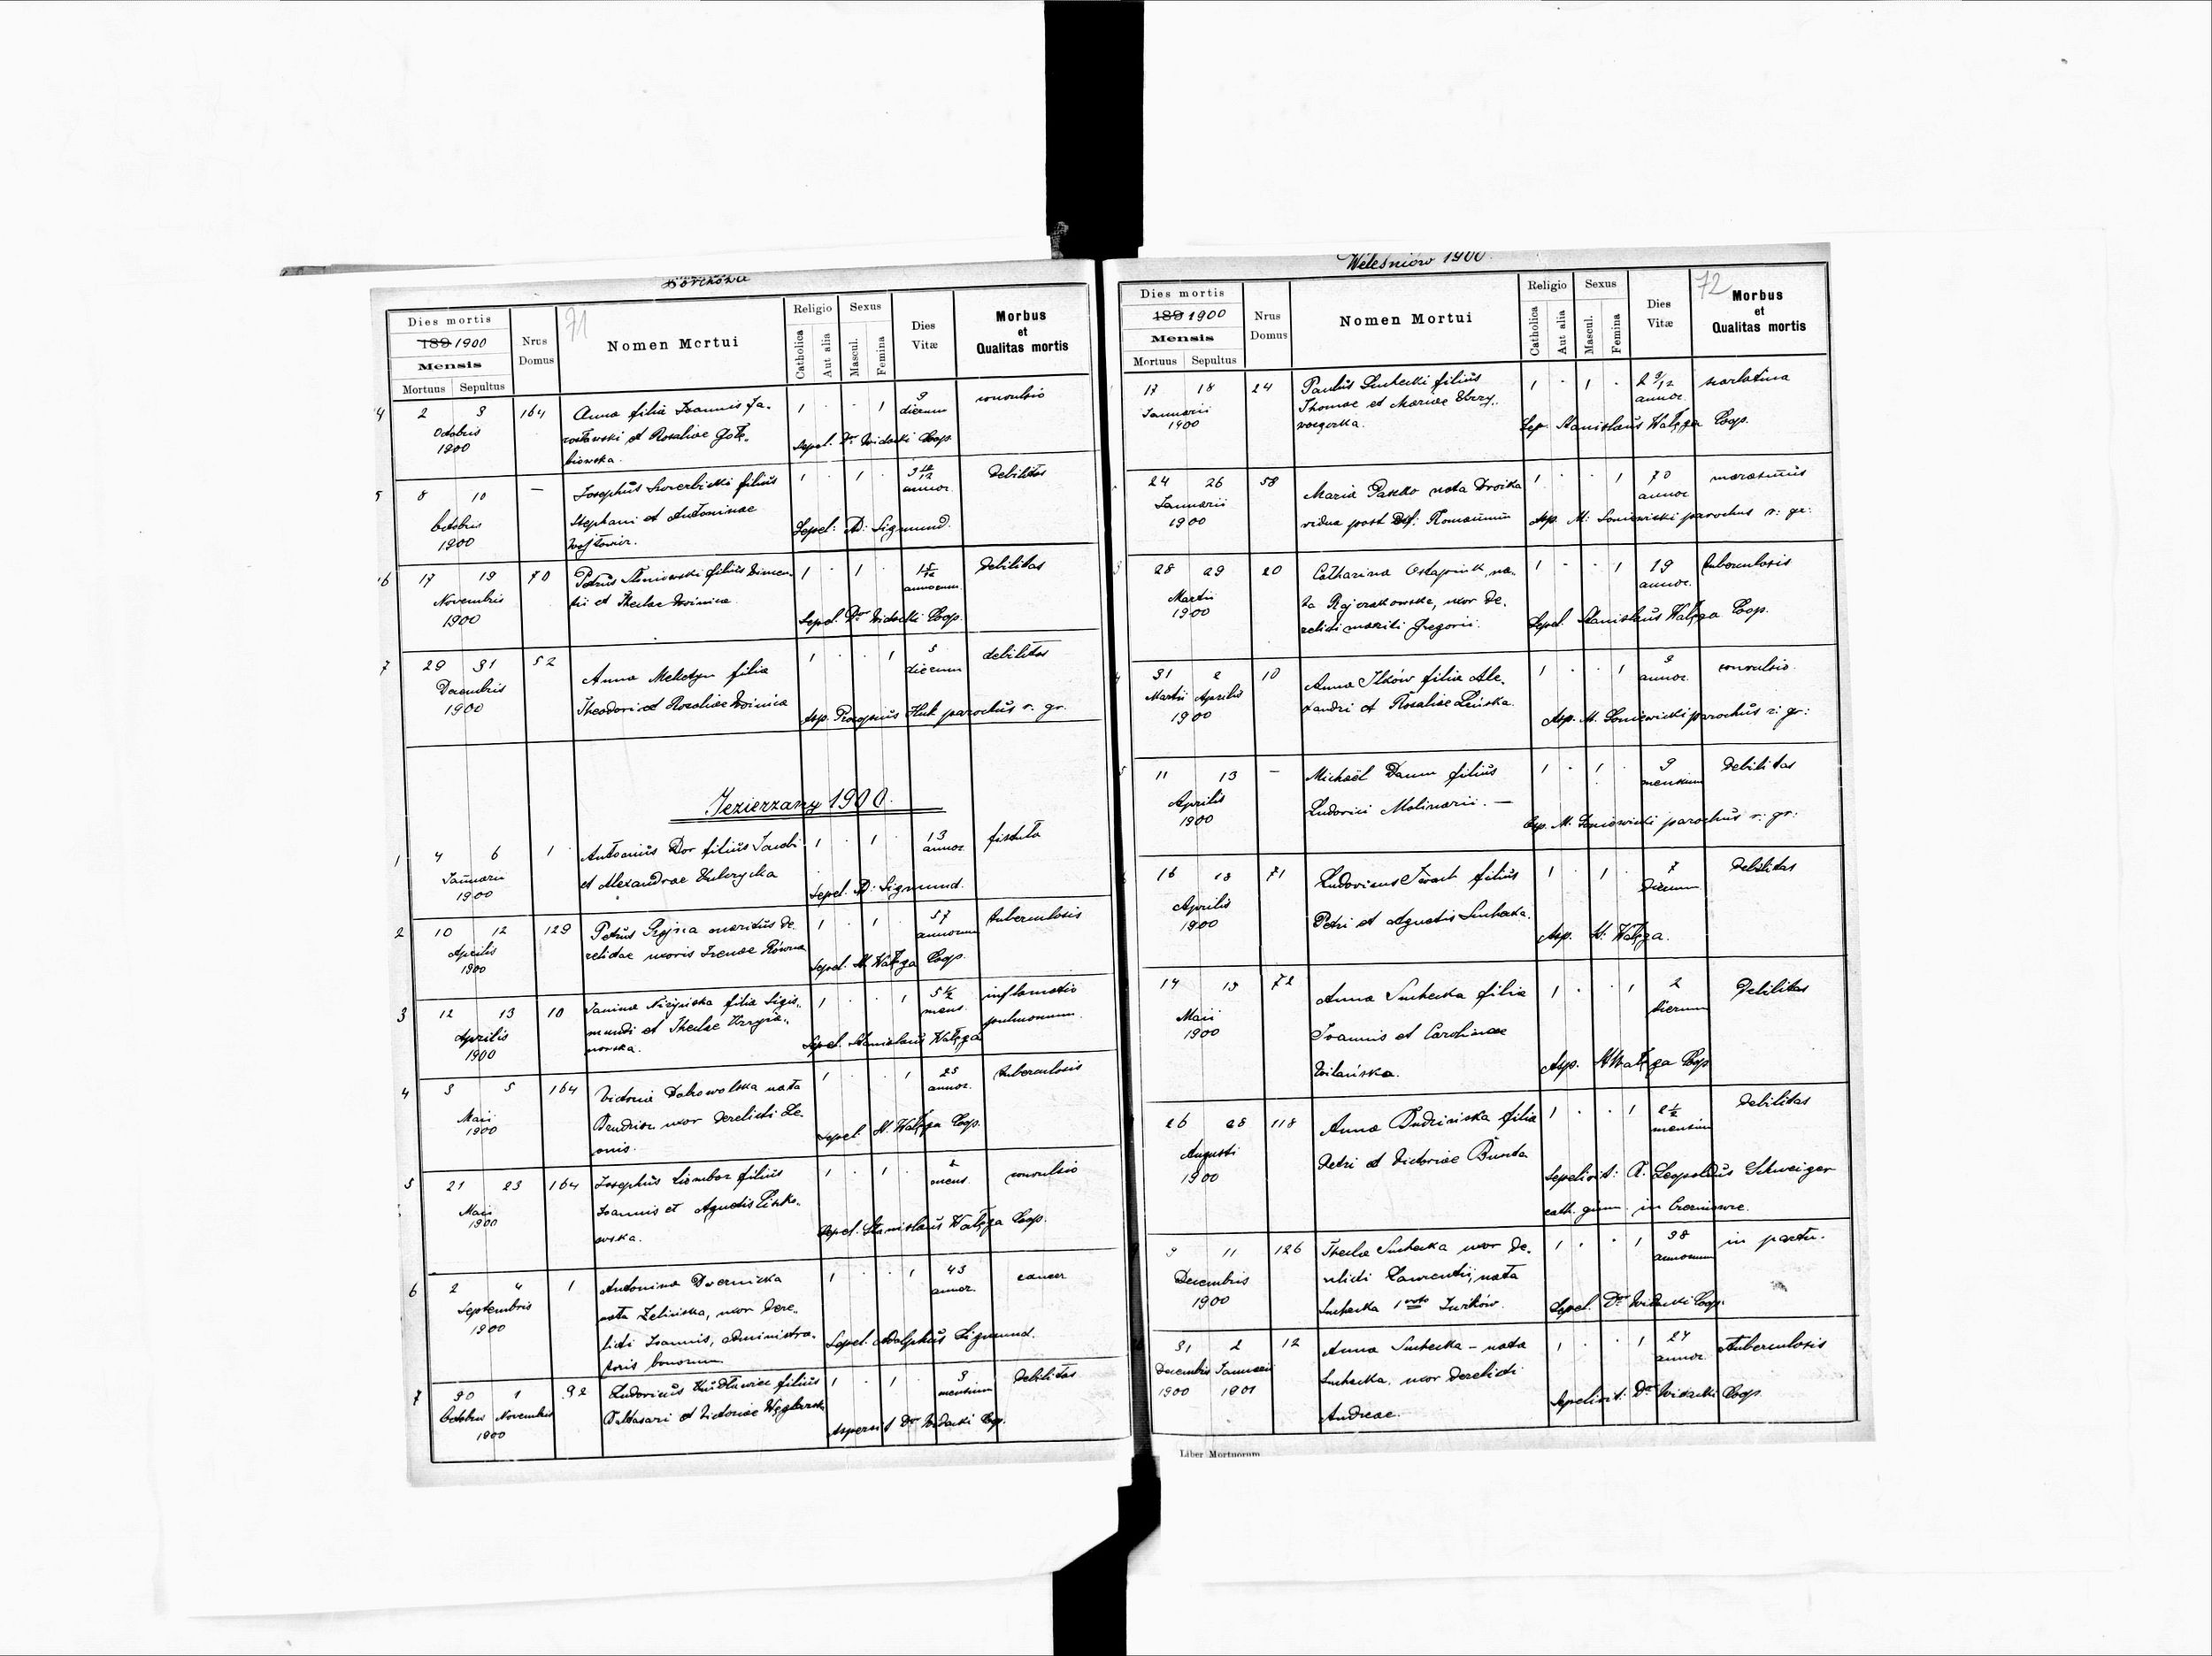 Dies mortis
189 1900
Mensis
Mortuus Sepultus
Nrus Domus
71
Nomen Mortui
Religio
Catholica
Aut alia
Sexus
Mascul.
Femina
Dies Vitæ
Morbus
et
Qualitas mortis
4 2 3 164 Anna filia Joannis Ja- 1 . . 1 9 dierum convulsio
Octobris rosławski et Rosaliae Gołę-
1900 biowska. Sepel. Dr Widacki Coop.
5 8 10 — Josephus filius 1 . 1 . annor. debilitas
Octobris Stephani et Antoninae
1900 Wojtowicz. Sepel: A: Sigmund.
6 17 19 70 Petrus filius 1 . 1 . annorum debilitas
Novembris et Theclae Woinica.
1900 Sepel. Dr Widacki Coop.
7 29 31 52 Anna filia 1 . . 1 5 dierum debilitas
Decembris Theodori et Rosaliae Woinica
1900 Asp. Procopius Huk parochus r. gr.
Jezierzany 1900.
1 4 6 1 Antonius Dor filius Jacobi 1 . 1 . 13 annor. fistula
Januarii et Alexandrae
1900 Sepel. A: Sigmund.
2 10 12 129 Petrus maritus de- 1 . 1 . 57 annorum tuberculosis
Aprilis relictae uxoris Irenae Równa
1900 Sepel. St. Wałęga Coop.
3 12 13 10 Janina filia Sigis- 1 . . 1 5 1/2 mens. inflamatio
Aprilis mundi et Theclae Krzyża- pulmonum.
1900 nowska. Sepel. Stanislaus Wałęga
4 3 5 164 Victoria Dobrowolska nata 1 . . 1 25 annor. tuberculosis
Maii uxor derelicti Le-
1900 onis. Sepel. St. Wałęga Coop.
5 21 23 164 Josephus filius 1 . 1 . 2 mens. convulsio
Maii Joannis et Agnetis
1900 owska. Sepel. Stanislaus Wałęga Coop.
6 2 4 1 Antonina Dwernicka 1 . . 1 43 annor. cancer
Septembris nata Zelińska, uxor dere-
1900 licti Joannis, administra- Sepel. Adolphus Sigmund.
toris bonorum.
7 30 1 92 Ludovicus filius 1 . 1 . 9 mensium debilitas
Octobris Novembris Baltasari et Victoriae Węglarska
1900 Aspersit Dr Widacki Coop.
Weleśniów 1900.
Dies mortis
189 1900
Mensis
Mortuus Sepultus
Nrus Domus
Nomen Mortui
Religio
Catholica
Aut alia
Sexus
Mascul.
Femina
Dies Vitæ
72
Morbus
et
Qualitas mortis
17 18 24 Paulus Suchecki filius 1 . 1 . 2 9/12 annor. scarlatina
Januarii Thomae et Mariae
1900 Sep. Stanislaus Wałęga Coop.
24 26 58 Maria Pasko nata Woika 1 . . 1 70 annor. marasmus
Januarii vidua post def. Romanum
1900 Asp. M. Soniewicki parochus r: gr:
28 29 20 Catharina Ostapiuk, na- 1 . . 1 19 annor. tuberculosis
Martii ta uxor de-
1900 relicti mariti Gregorii. Sepel. Stanislaus Wałęga Coop.
31 2 10 Anna Ilków filia Ale- 1 . . 1 3 annor. convulsio.
Martii Aprilis xandri et Rosaliae
1900 Asp. M. Soniewicki parochus r: gr:
11 13 — Michaël Daum filius 1 . 1 . 9 mensium debilitas
Aprilis Ludovici Molinarii. —
1900 Asp. M. Soniewicki parochus r: gr:
16 18 71 Ludovicus filius 1 . 1 . 7 dierum debilitas
Aprilis Petri et Agnetis Suchecka.
1900 Asp. St: Wałęga.
14 15 72 Anna Suchecka filia 1 . . 1 2 dierum debilitas
Maii Joannis et Carolinae
1900 Wilańska. Asp. St Wałęga Coop
26 28 118 Anna Budzińska filia 1 . . 1 2 1/2 mensium debilitas
Augusti Petri et Victoriae Bunda
1900 Sepelivit: A. Leopoldus Schweiger
cath. gimn. in
9 11 126 Thecla Suchecka uxor de- 1 . . 1 38 annorum in partu.
Decembris relicti Laurentii, nata
1900 Suchecka 1 voto Iwików. Sepel. Dr Widacki Coop.
31 2 12 Anna Suchecka – nata 1 . . 1 27 annor. tuberculosis
Decembris Januarii Suchecka, uxor derelicti
1900 1901 Andreae. Sepelivit: Dr Widacki Coop.
Liber Mortuorum